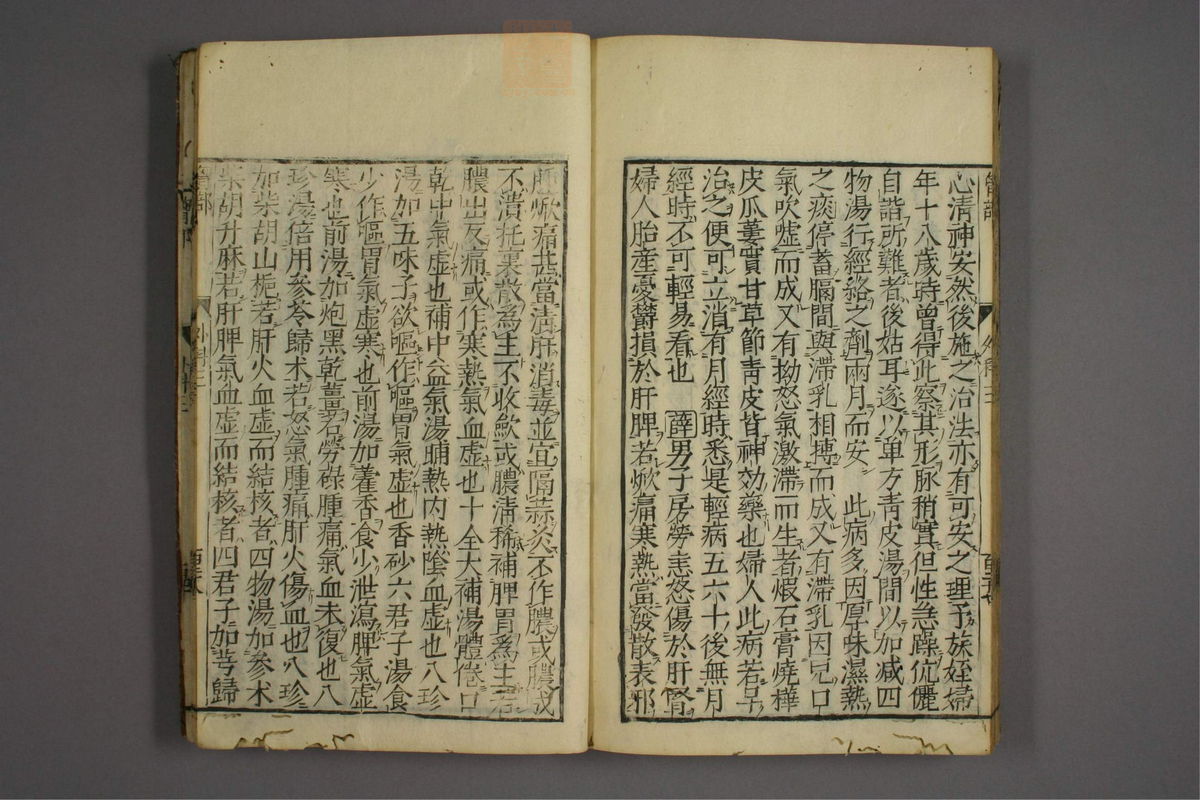 心清神安然後施之治法亦有可安之理予族姪婦
年十八歲時曾得此察其形脉稍實但性急躁伉儷
自諧所難者後姑耳遂以单方青皮湯間以加减四
物湯行經絡之劑兩月而安　此病多因厚味濕熱
之痰停蓄膈間與滯乳相搏而成又有滯乳因兒口
氣吹噓而成又有拗怒氣激滯而生者煆石膏燒樺
皮瓜蔞實甘草節青皮皆神効藥也婦人此病若早
治之便可立消有月經時悉是輕病五六十後無月
經時不可輕易看也　薛男子房勞恚怒傷於肝腎
婦人胎產憂鬱損於肝脾若焮痛寒熱當發散表邪
肝焮痛甚當清肝消毒並宜隔蒜灸不作膿或膿成
不潰托裏散爲主不收歛或膿清稀補脾胃爲主若
膿出反痛或作寒熱氣血虛也十全大補湯體倦口
乾中氣虛也補中益氣湯晡熱内熱陰血虛也八珍
湯加五味子欲嘔作嘔胃氣虛也香砂六君子湯食
少作嘔胃氣虛寒也前湯加藿香食少泄瀉脾氣虛
寒也前湯加炮黑乾薑若勞碌腫痛氣血未復也八
珍湯倍用參苓歸术若怒氣腫痛肝火傷血也八珍
加柴胡山梔若肝火血虛而結核者四物湯加參术
柴胡升麻若肝脾氣血虛而結核者四君子加芎歸